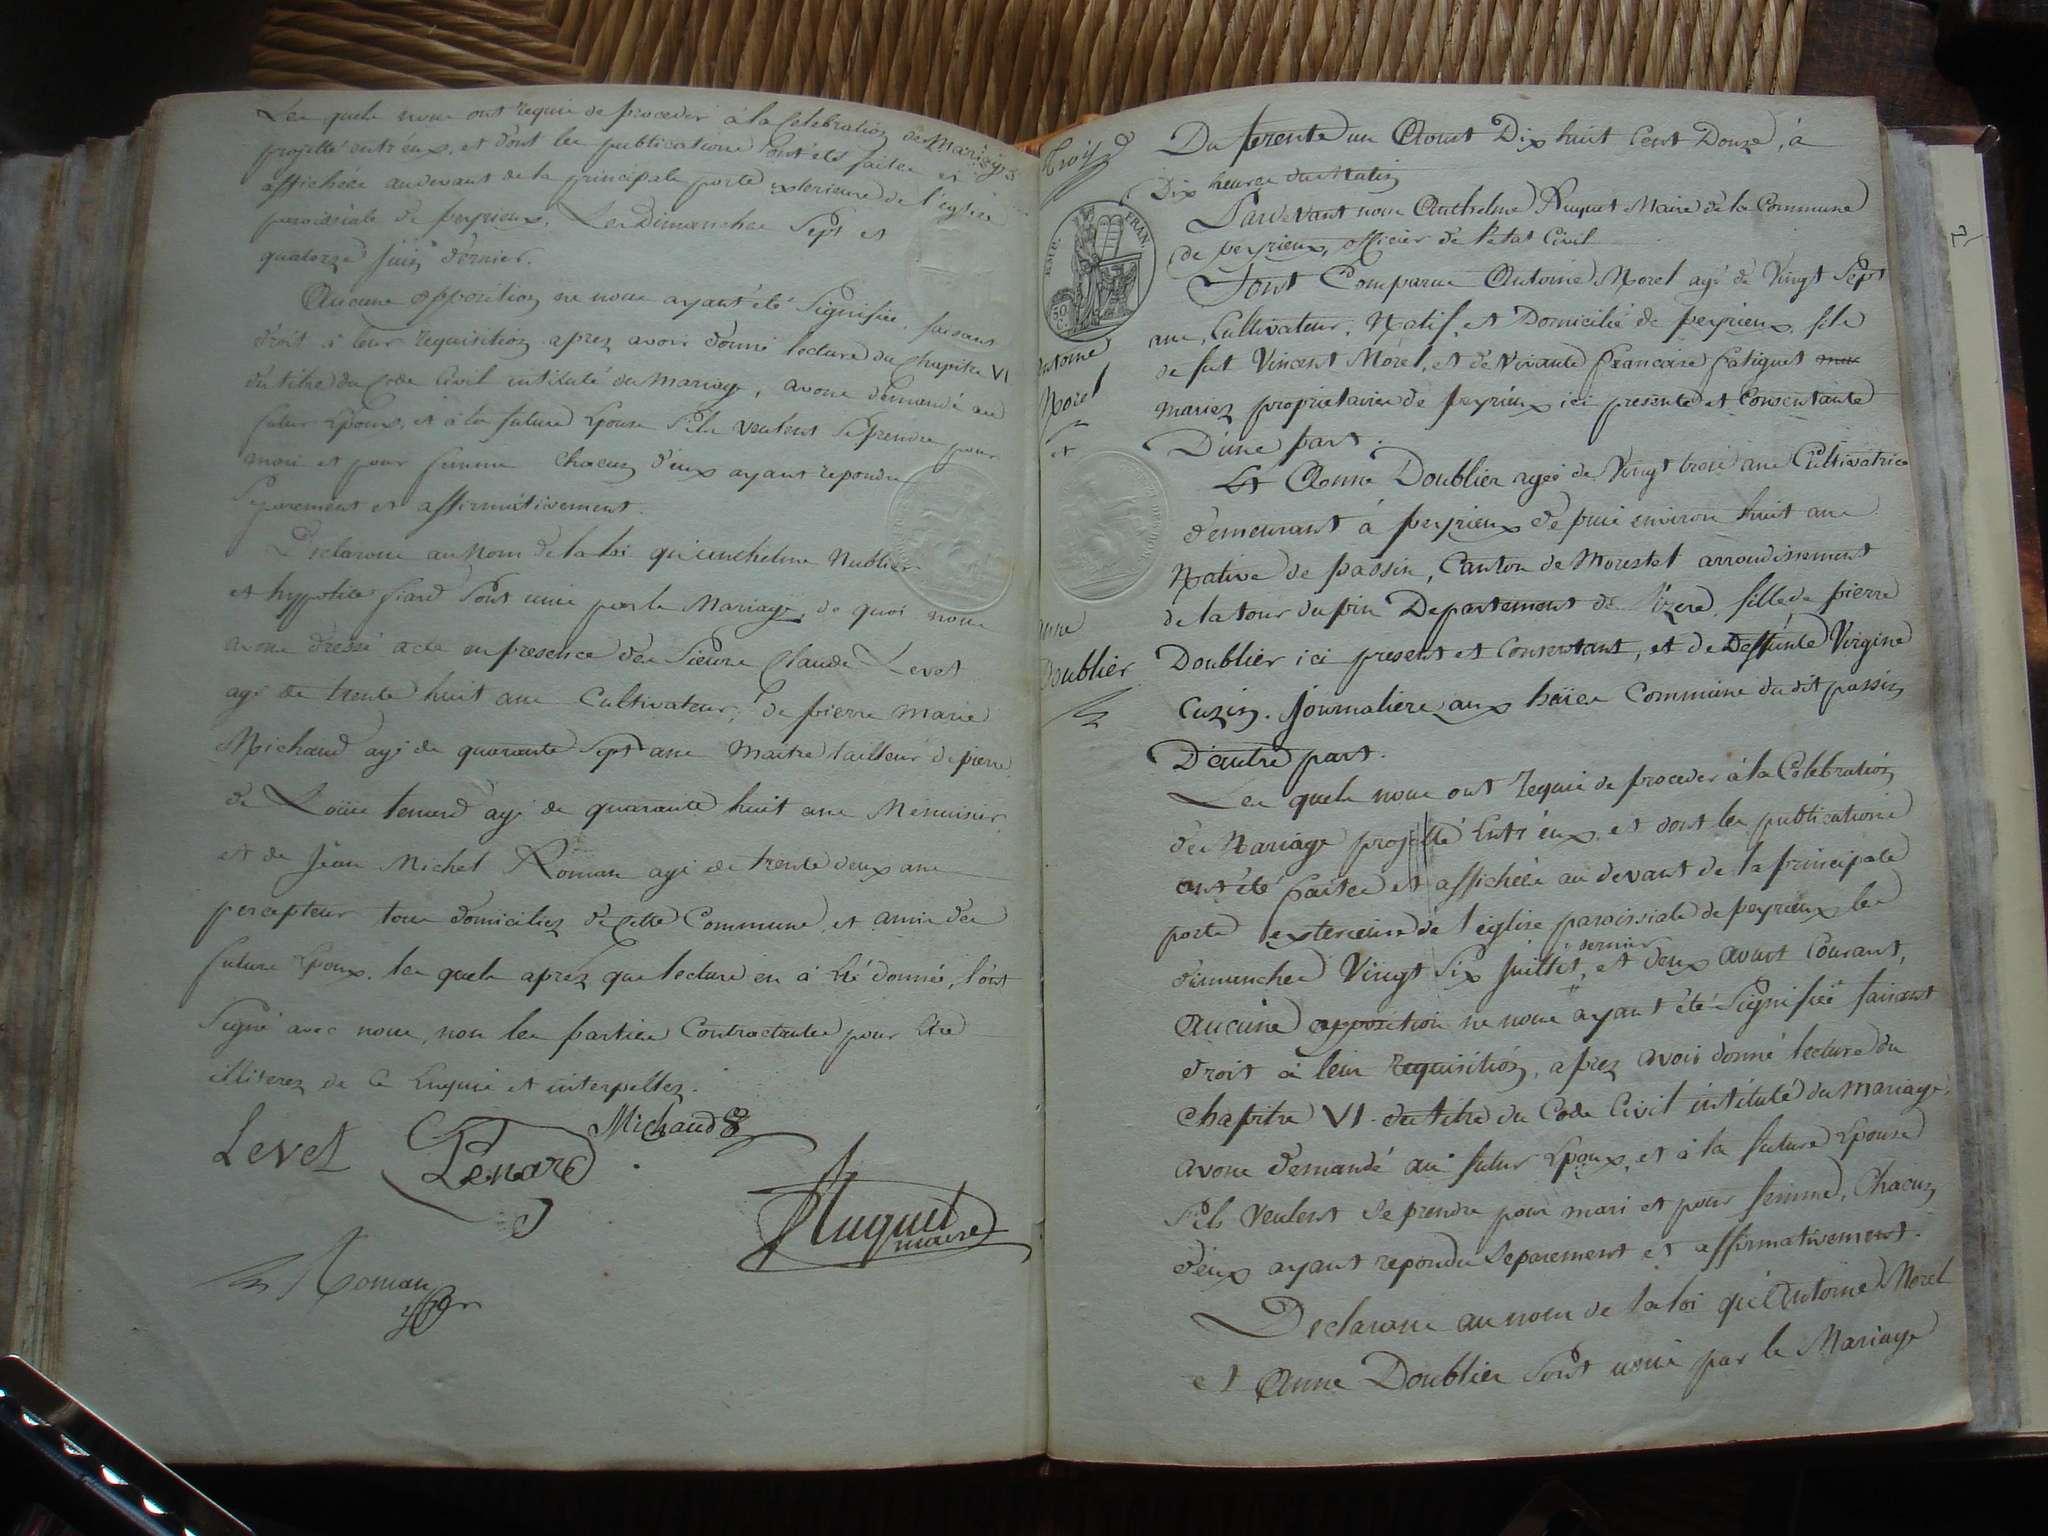 Les quels nous ont requis de proceder à la Celebration du Mariage
projetté entr'eux, et dont les publications ont été faites et
affichées au devant de la principale porte exterieure de l'eglise
paroissiale de peyrieux, Les Dimanches Sept et
quatorze juin dernier.
Aucune opposition ne nous ayant été Signifiée, faisant
droit à leur requisition aprez avoir donné lecture du Chapitre VI
du titre du Code Civil intitulé du Mariage, avons demandé au
futur Epoux, et à la future Epouse S'ils veulent Se prendre pour
mari et pour femme chacun d'eux ayant repondu
Separement et affirmativement.
Declarons au Nom de la loi qu'anthelme Nublier
et hyppolite Siard Sont unis par le Mariage, de quoi nous
avons dressé acte en presence des Sieurs Claude Levet
agé de trente huit ans Cultivateur, de pierre Marie
Michaud agé de quarante Sept ans Maitre tailleur de pierre
de Loüis tenard agé de quarante huit ans Menuisier,
et de Jean Michel Roman agé de trente deux ans
percepteur tous domiciliez de Cette Commune, et amis des
futurs Epoux, les quels aprez que lecture en à Eté donnée, l'ont
Signé avec nous, non les parties Contractantes pour Etre
illiterez de Ce Enquis et interpellez.
Levet Tenard Michaud
Huguet
maire
Roman
Trois
Du trente un Aoust Dix huit Cent Douze, à
Dix heures du Matin
Pardevant nous Anthelme Huguet Maire de la Commune
de peyrieux, officier de l'etat Civil
EMP. FRAN.
50
C.
Sont Comparus Antoine Morel agé de Vingt Sept
ans, Cultivateur, Natif, et Domicilié de peyrieux, fils
de fut Vincent Morel, et de Vivante francoise fatiguet
mariez proprietaires de peyrieux ici presente et Consentante
D'une part.
Antoine
Morel
et
Anne
Doublier
Et Anne Doublier agée de Vingt trois ans Cultivatrice
demeurant à peyrieux depuis environ huit ans
Native de passin, Canton de Morestel arrondissement
de la tour du pin Departement de l'izere, fille de pierre
Doublier ici present et Consentant, et de Deffunte Virgine
Cuzin. Journaliere aux haïes Commune du dit passin
D'autre part.
Les quels nous ont requis de proceder à la Celebration
du Mariage projetté Entr'eux, et dont les publications
ont été faites et affichées au devant de la principale
porte exterieure de l'eglise paroissiale de peyrieux les
dernier
dimanches Vingt Six Juillet, et deux aoust Courant,
Aucune opposition ne nous ayant été Signifiée faisant
droit à leur requisition, aprez avoir donné lecture du
Chapitre VI. du titre du Code Civil intitulé du Mariage,
avons demandé au futur Epoux, et à la future Epouse
S'ils veulent Se prendre pour mari et pour femme, Chacun
d'eux ayant repondu Separement et affirmativement.
Declarons au nom de la loi qu'Antoine Morel
et Anne Doublier Sont unis par le Mariage